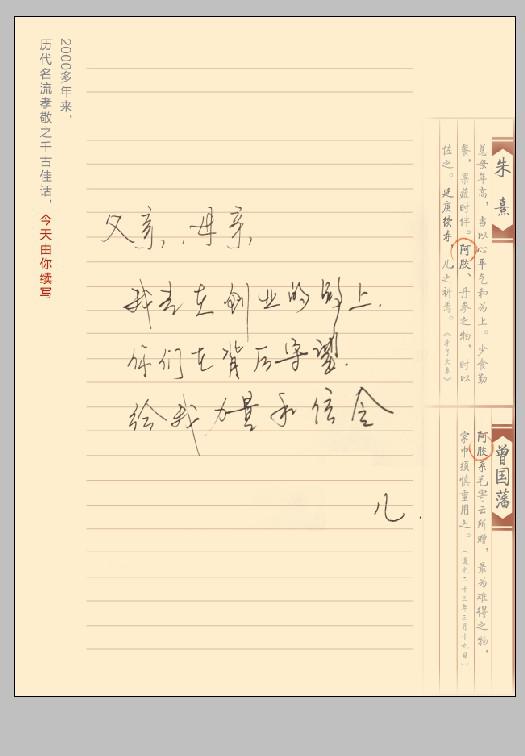 2000多年来，
历代名流孝敬之千古佳话，今天由你续写
父亲、母亲，
我走在创业的路上.
你们在背后守望.
给我力量和信念
儿.
朱熹
慈母年高，当以心平气和为上。少食勤
餐，果蔬时伴。阿胶、丹参之物，时以
佐之。延庚续寿，儿之祈焉。
曾国藩
阿胶系毛寄云所赠，最为难得之物，
家中须慎重用之。